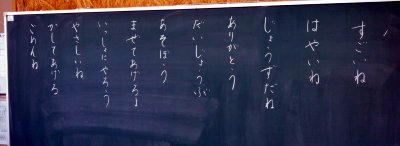 すごいね
はやいね
じょうずだね
ありがとう
だいじょうぶ
あそぼう
まぜてあげるよ
いっしょにやろう
やさしいね
かしてあげる
ごめんね